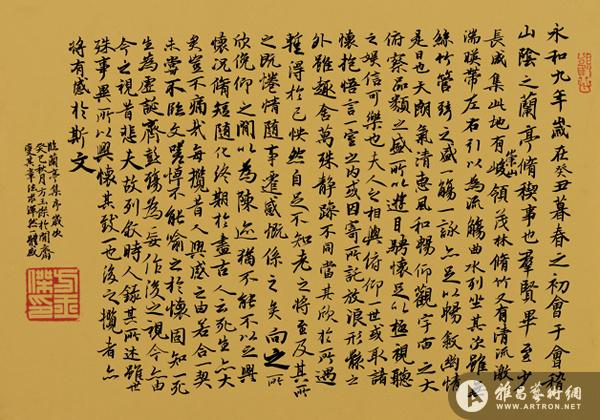 永和九年歲在癸丑暮春之初會于會稽
山陰之蘭亭脩稧事也羣賢畢至少
長咸集此地有崇山峻領茂林脩竹又有清流激
湍暎帶左右引以為流觴曲水列坐其次雖無
絲竹管弦之盛一觴一詠亦足以暢敘幽情
是日也天朗氣清惠風和暢仰觀宇宙之大
俯察品類之盛所以遊目騁懷足以極視聽
之娛信可樂也夫人之相與俯仰一世或取諸
懷抱悟言一室之內或因寄所託放浪形骸之
外雖趣舍萬殊靜躁不同當其欣於所遇
暫得於己怏然自足不知老之將至及其所
之既惓情隨事遷感慨係之矣向之所
欣俛仰之間以為陳迹猶不能不以之興
懷況脩短隨化終期於盡古人云死生亦大
矣豈不痛哉每攬昔人興感之由若合一契
未嘗不臨文嗟悼不能喻之於懷固知一死
生為虛誕齊彭殤為妄作後之視今亦由
今之視昔悲夫故列敘時人錄其所述雖世
殊事異所以興懷其致一也後之攬者亦
將有感於斯文
臨蘭亭集序歲次
癸巳秋月方玉傑於閒齋
雅昌藝術網
WWW.ARTRON.NET